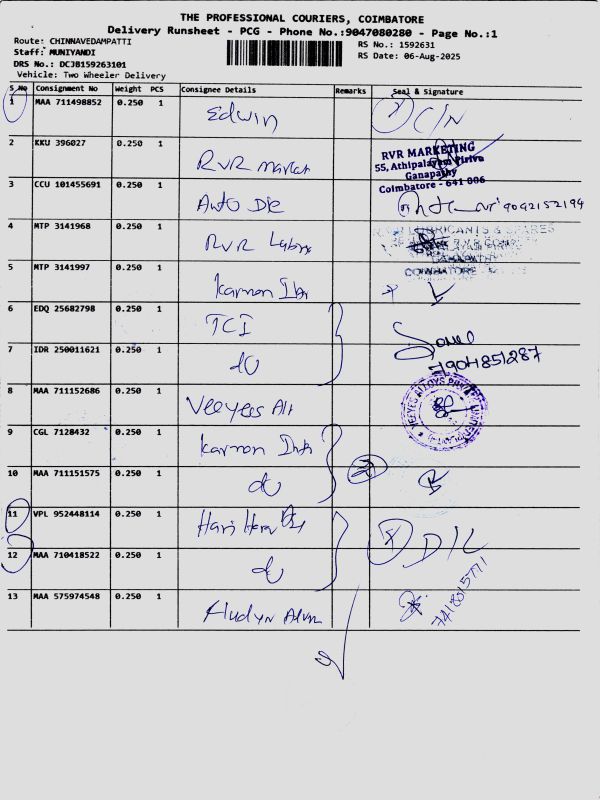 THE PROFESSIONAL COURIERS, COIMBATORE
Delivery Runsheet - PCG - Phone No.:9047080280 - Page No.:1
Route: CHINNAVEDAMPATTI
RS No.: 1592631
Staff: MUNIYANDI
RS Date: 06-Aug-2025
DRS No.: DCJB159263101
Vehicle: Two Wheeler Delivery
S No Consignment No Weight PCS Consignee Details Remarks Seal & Signature
1 MAA 711498852 0.250 1 Edwin
2 KKU 396027 0.250 1 RVR Market
RVR MARKETING
55, Athipalayam Pirivu
Ganapathy
Coimbatore - 641 006
3 CCU 101455691 0.250 1 Auto Die 9092152194
4 MTP 3141968 0.250 1 RVR
LUBRICANTS & SPARES
COIMBATORE
5 MTP 3141997 0.250 1
6 EDQ 25682798 0.250 1 TCI
7 IDR 250011621 0.250 1 do 7904851287
8 MAA 711152686 0.250 1 Veeyees All
VEEYES ALLOYS
9 CGL 7128432 0.250 1
10 MAA 711151575 0.250 1 do
11 VPL 952448114 0.250 1 Hari Hara D/L
12 MAA 710418522 0.250 1 do
13 MAA 575974548 0.250 1